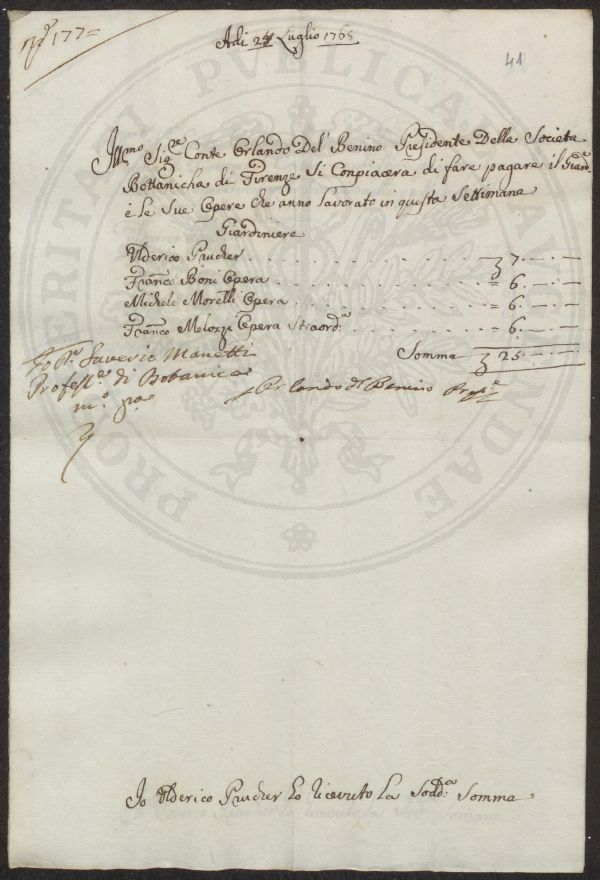 N.º 177=
Adi 24 Luglio 1768
41
Ill.mo Sig.e Conte Orlando Del' Benino Presidente Delle Societa
Bottanicha di Firenze Si Conpiacera di fare pagare il Giard.e
e le Sue Opere che anno lavorato in questa Settimana
Giardiniere
Ulderico Prucher . . . . . 7. — . —
Franco Boni Opera . . . . . = 6. — . —
Michele Morelli Opera . . . . . = 6. — . —
Franco Melozzi Opera Straord.a . . . . . = 6. — . —
Somma 25. — . —
Io: Saverio Manetti
Profess.re di Botanica
m.o p.a
Orlando Del Benino Pres.e
Io Ulderico Prucher ho ricevuto La Sodd.a Somma
PROSPERITATI PVBLICAE AVGENDAE